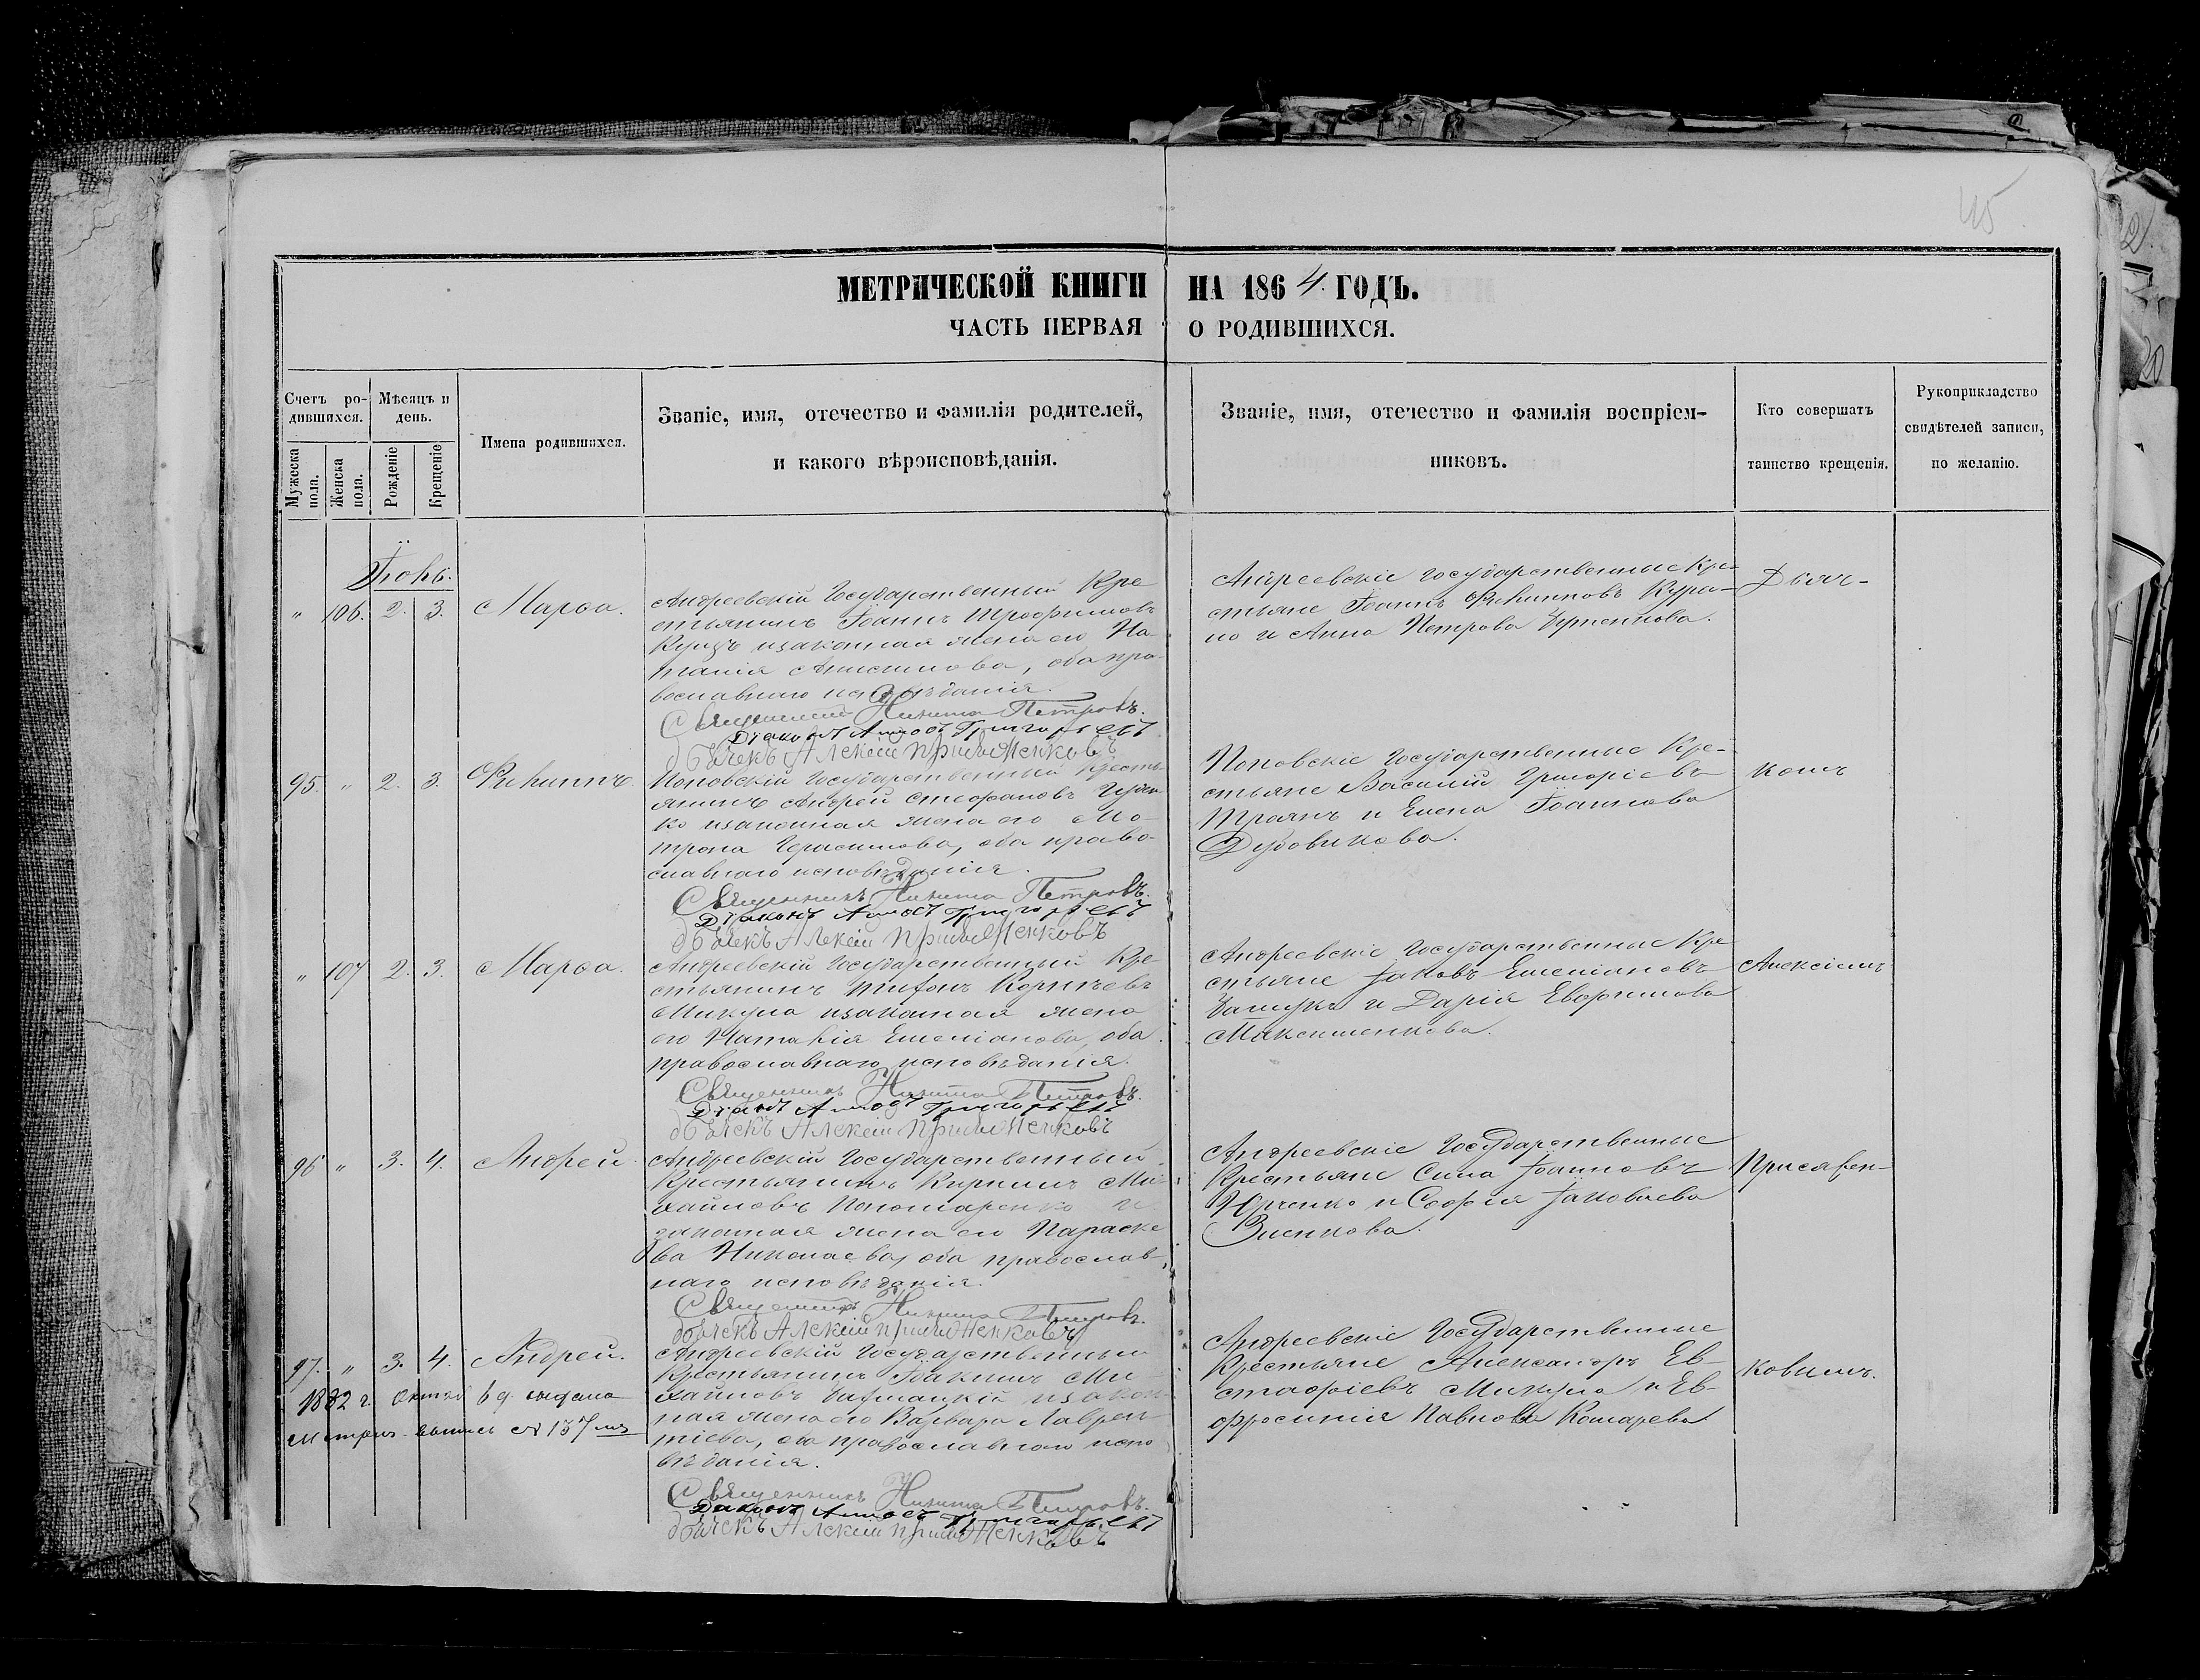 45
МЕТРИЧЕСКОЙ КНИГИ НА 1864 ГОДЪ.
ЧАСТЬ ПЕРВАЯ О РОДИВШИХСЯ.
Счетъ ро-
дившихся.
Мужеска пола.
Женска пола.
Мѣсяцъ и
день.
Рожденіе
Крещеніе
Имена родившихся.
Званіе, имя, отечество и фамилія родителей,
и какого вѣроисповѣданія.
Званіе, имя, отечество и фамилія воспріем-
никовъ.
Кто совершатъ
таинство крещенія.
Рукоприкладство
свидѣтелей записи,
по желанію.
" 106. 2. 3. Марѳа.
Андреевскій Государственный Кре
стьянинъ Іоаннъ Трофимовъ
изаконная жена его На
талія Анисимова, оба пра-
вославнаго исповѣданія.
Священникъ Никита Петровъ.
Діаконъ Григорьевъ
дьячекъ Алексій
Андреевскіе государственные Кре-
стьяне Іоаннъ
но и Анна Петрова
Дьяч-
95. " 2. 3. Филиппъ.
Поповскій Государственный Кресть-
янинъ Андрей Стефановъ
ко изаконная жена его Мо-
трона Герасимова, оба право-
славнаго исповѣданія.
Священникъ Никита Петровъ.
Діаконъ Григорьевъ
дьячекъ Алексій
Поповскіе Государственные Кре-
стьяне Василій Григоріевъ
Троянъ и Елена Іоаннова
Дудовикова.
комъ
" 107 2. 3. Марѳа.
Андреевскій Государственный Кре
стьянинъ Тихонъ Корнѣевъ
Микула изаконная жена
его Наталія Емеліанова, оба
православнаго исповѣданія.
Священникъ Никита Петровъ.
Діаконъ Григорьевъ
дьячекъ Алексій
Андреевскіе Государственные Кре
стьяне Іаковъ Емеліановъ
и Дарія Евфимова
Максименкова.
Алексіемъ
96 " 3. 4. Андрей
Андреевскій Государственный
Крестьянинъ Кириллъ Ми-
хайловъ Пономаренко и
законная жена его Параске
ва Николаева, оба православ-
наго исповѣданія.
Священникъ Никита Петровъ.
дьячекъ Алексій
Андреевскіе Государственные
Крестьяне Сила Іоанновъ
Юрченко и Софія Іаковлева
Зленкова.
97. " 3. 4. Андрей.
1882 г. Октяб 6 д. выдана
метрич. выпись № 137
Андреевскій Государственный
Крестьянинъ Іоакимъ Ми
хайловъ изакон
ная жена его Варвара Лаврен
тіева, оба православнаго испо
вѣданія.
Священникъ Никита Петровъ.
Діаконъ Григорьевъ
дьячекъ Алексій
Андреевскіе Государственные
Крестьяне Александръ Ев-
стафіевъ Микула и Ев-
фросинія Павлова Комарева.
ковымъ.